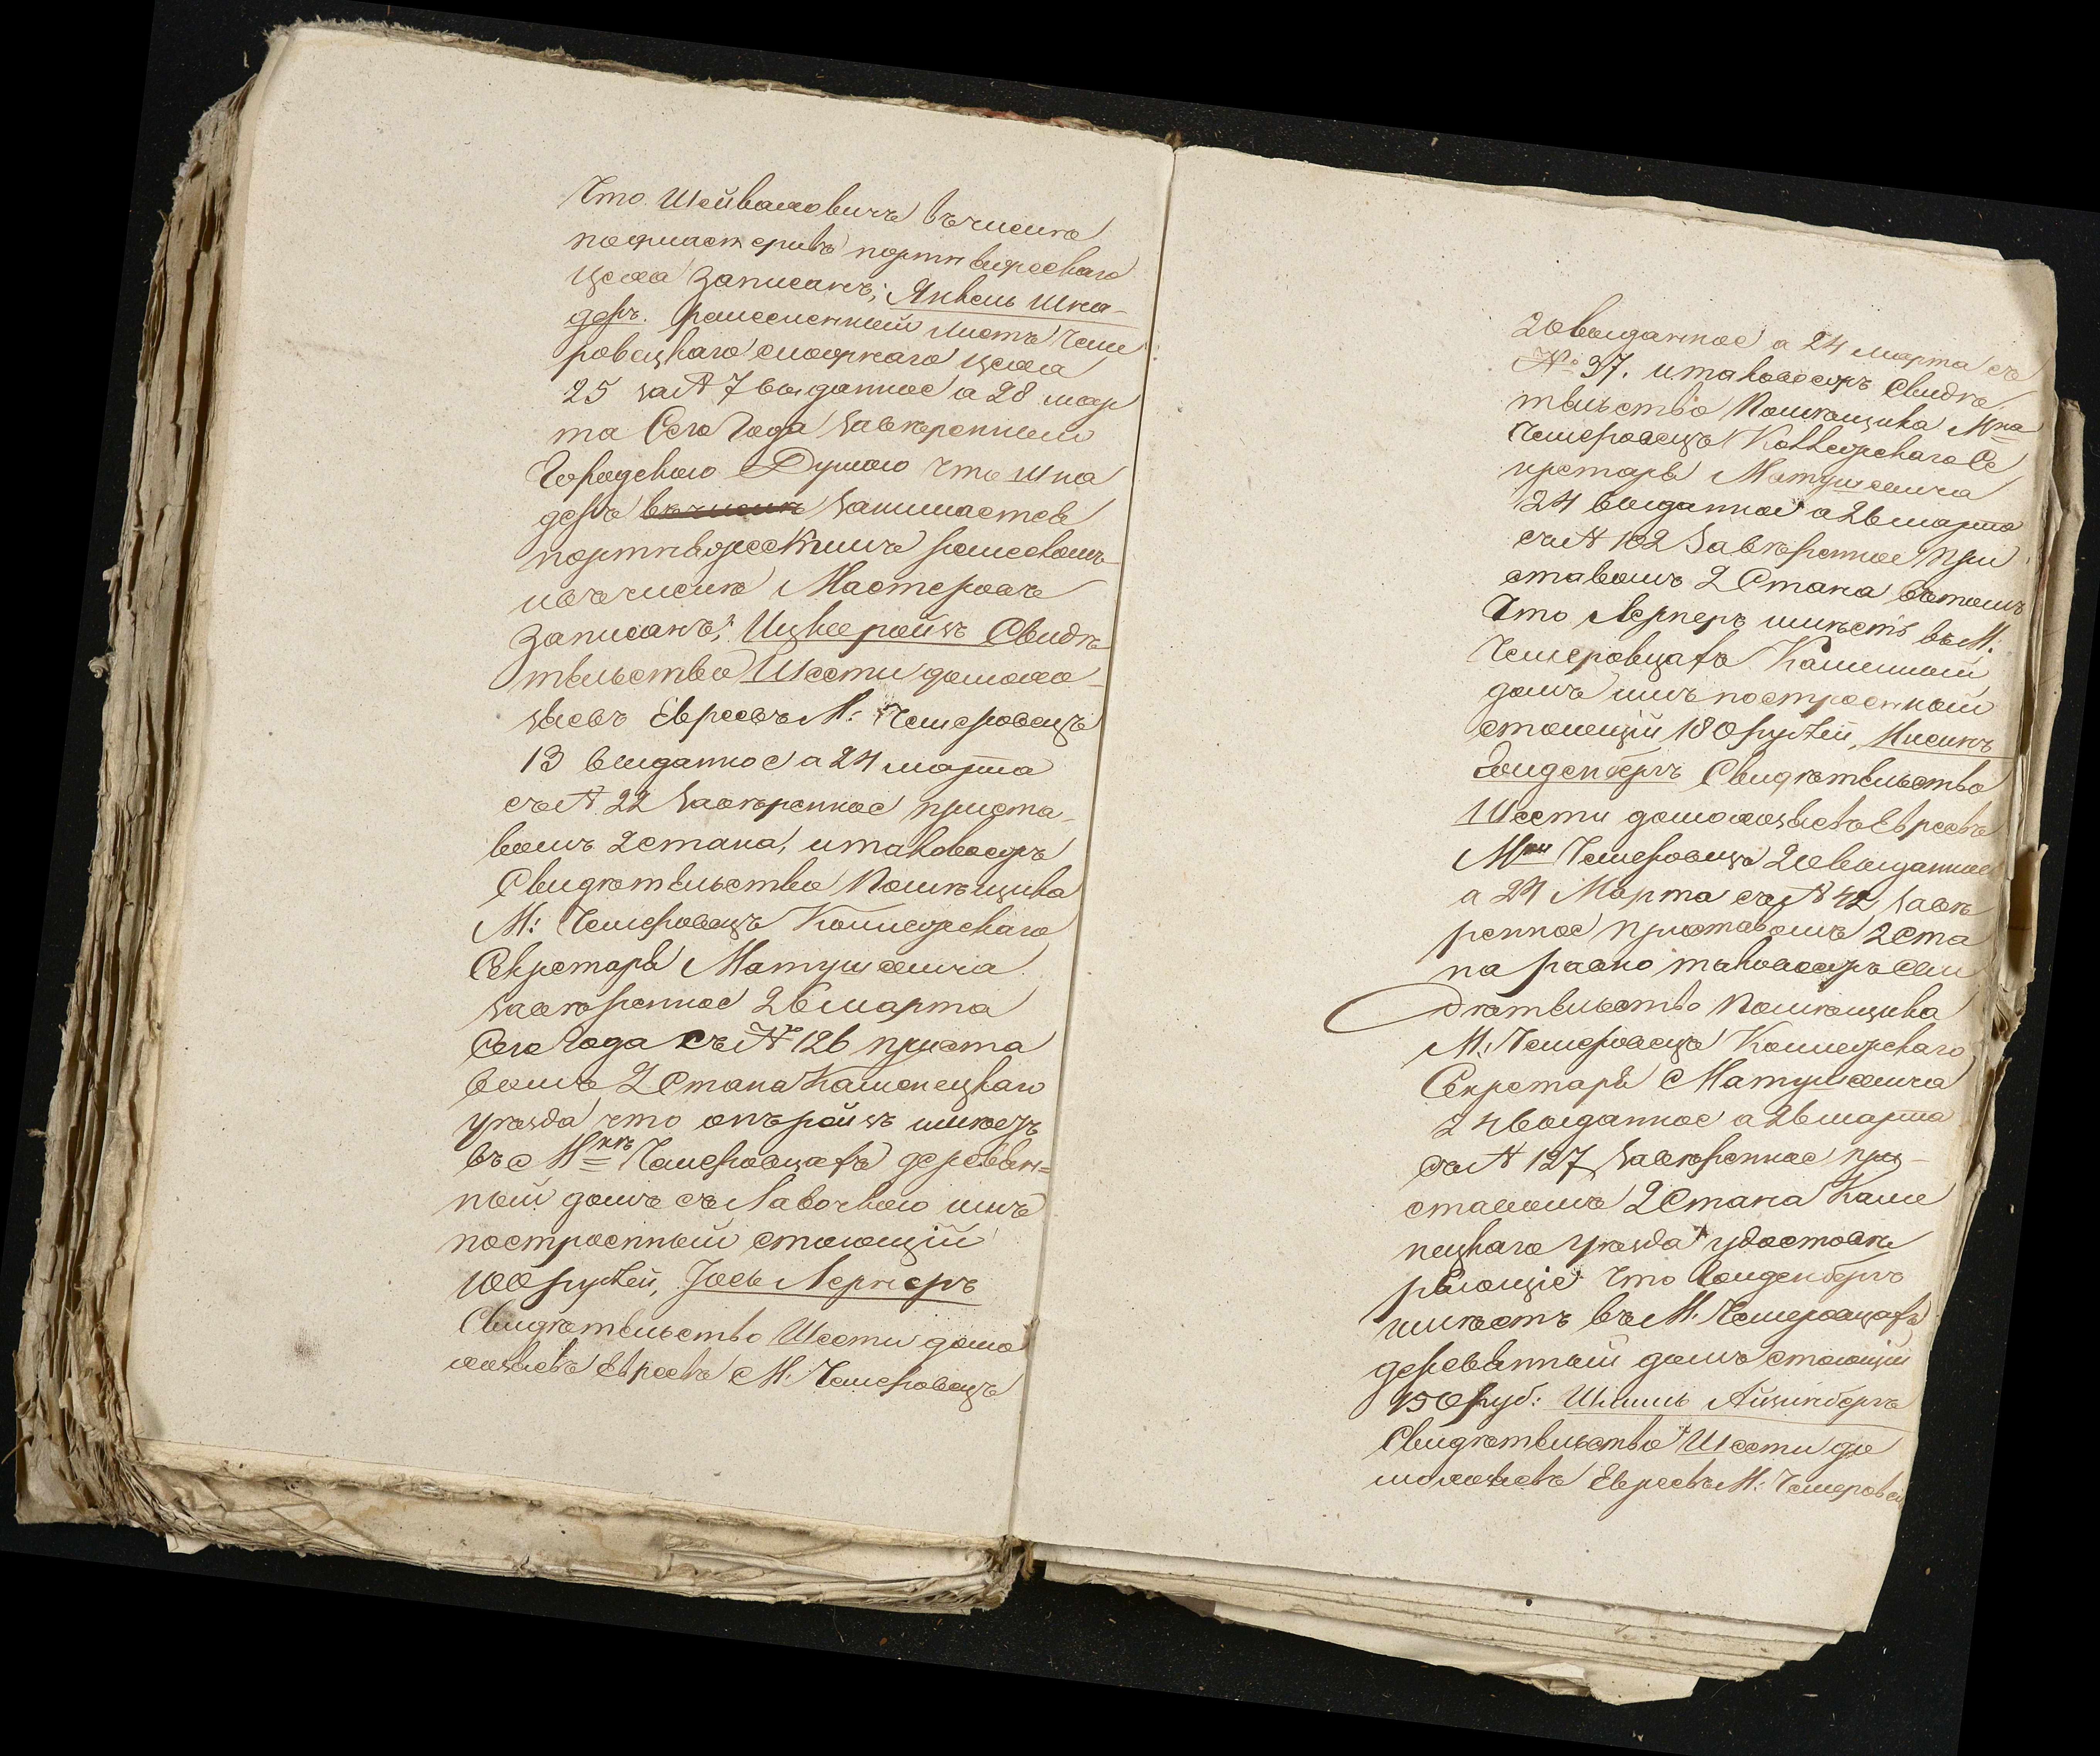 Что Шейваховичъ въ числѣ
подмастерьевъ портнѣвскаго
цеха записанъ; Янкель Шна-
деръ. ремесленный листъ Чеме
ровецкаго сложнаго цеха
25 за № 7 выданное а 28 мар
та Сего Года завѣренный
Городскою Думою что Шна
деръ въ числѣ занимается
портняжескимъ ремесломъ
и въ числѣ Мастеровъ
записанъ; Ицко Ройзъ Свидѣ
тельство Шести домохо-
зяевъ Евреевъ М: Чемеровецъ
13 выданное а 24 марта
съ № 22 завѣренное приста-
вомъ 2 стана, и таковоежъ
Свидѣтельство Помѣщика
М: Чемеровецъ Коллежскаго
Секретаря Матушевича
завѣренное 26 марта
Сего Года съ № 126 приста
вомъ 2 Стана Каменецкаго
уѣзда что онъ Ройзъ имѣетъ
въ Мкѣ Чемеровцахъ деревян=
ный домъ съ Лавочкою имъ
построенный стоющій
100 рублей, Іось Лернеръ
Свидѣтельство Шести домо
хозяевъ Евреевъ М: Чемеровецъ
20 выданное а 24 марта съ
№ 37. и таковоежъ Свидѣ
тельство Помѣщика Мка
Чемеровецъ Коллежскаго Се
кретаря Матушевича
24 выданное а 26 марта
съ № 102 Завѣренное При
ставомъ 2 Стана въ томъ
Что Лернеръ имѣетъ въ М.
Чемеровцахъ Каменный
домъ имъ построенный
стоющій 180 рублей,
Гольденбергъ Свидѣтельство
Шести домохозяевъ Евреевъ
Мки Чемеровецъ 20 выданное
а 24 Марта съ № 42 завѣ
ренное приставомъ 2 Ста
на равно таковоежъ Сви
дѣтельство Помѣщика
М: Чемеровецъ Коллежскаго
Секретаря Матушевича
24 выданное а 26 марта
съ № 127 завѣренное при-
ставомъ 2 Стана Каме
нецкаго Уѣзда удостовѣ
ряющіе что Гольденбергъ
имѣетъ въ М. Чемеровцахъ
деревянный домъ стоющій
150 руб: Айзинбергъ
Свидѣтельство Шести до
мохозяевъ Евреевъ М: Чемеровец